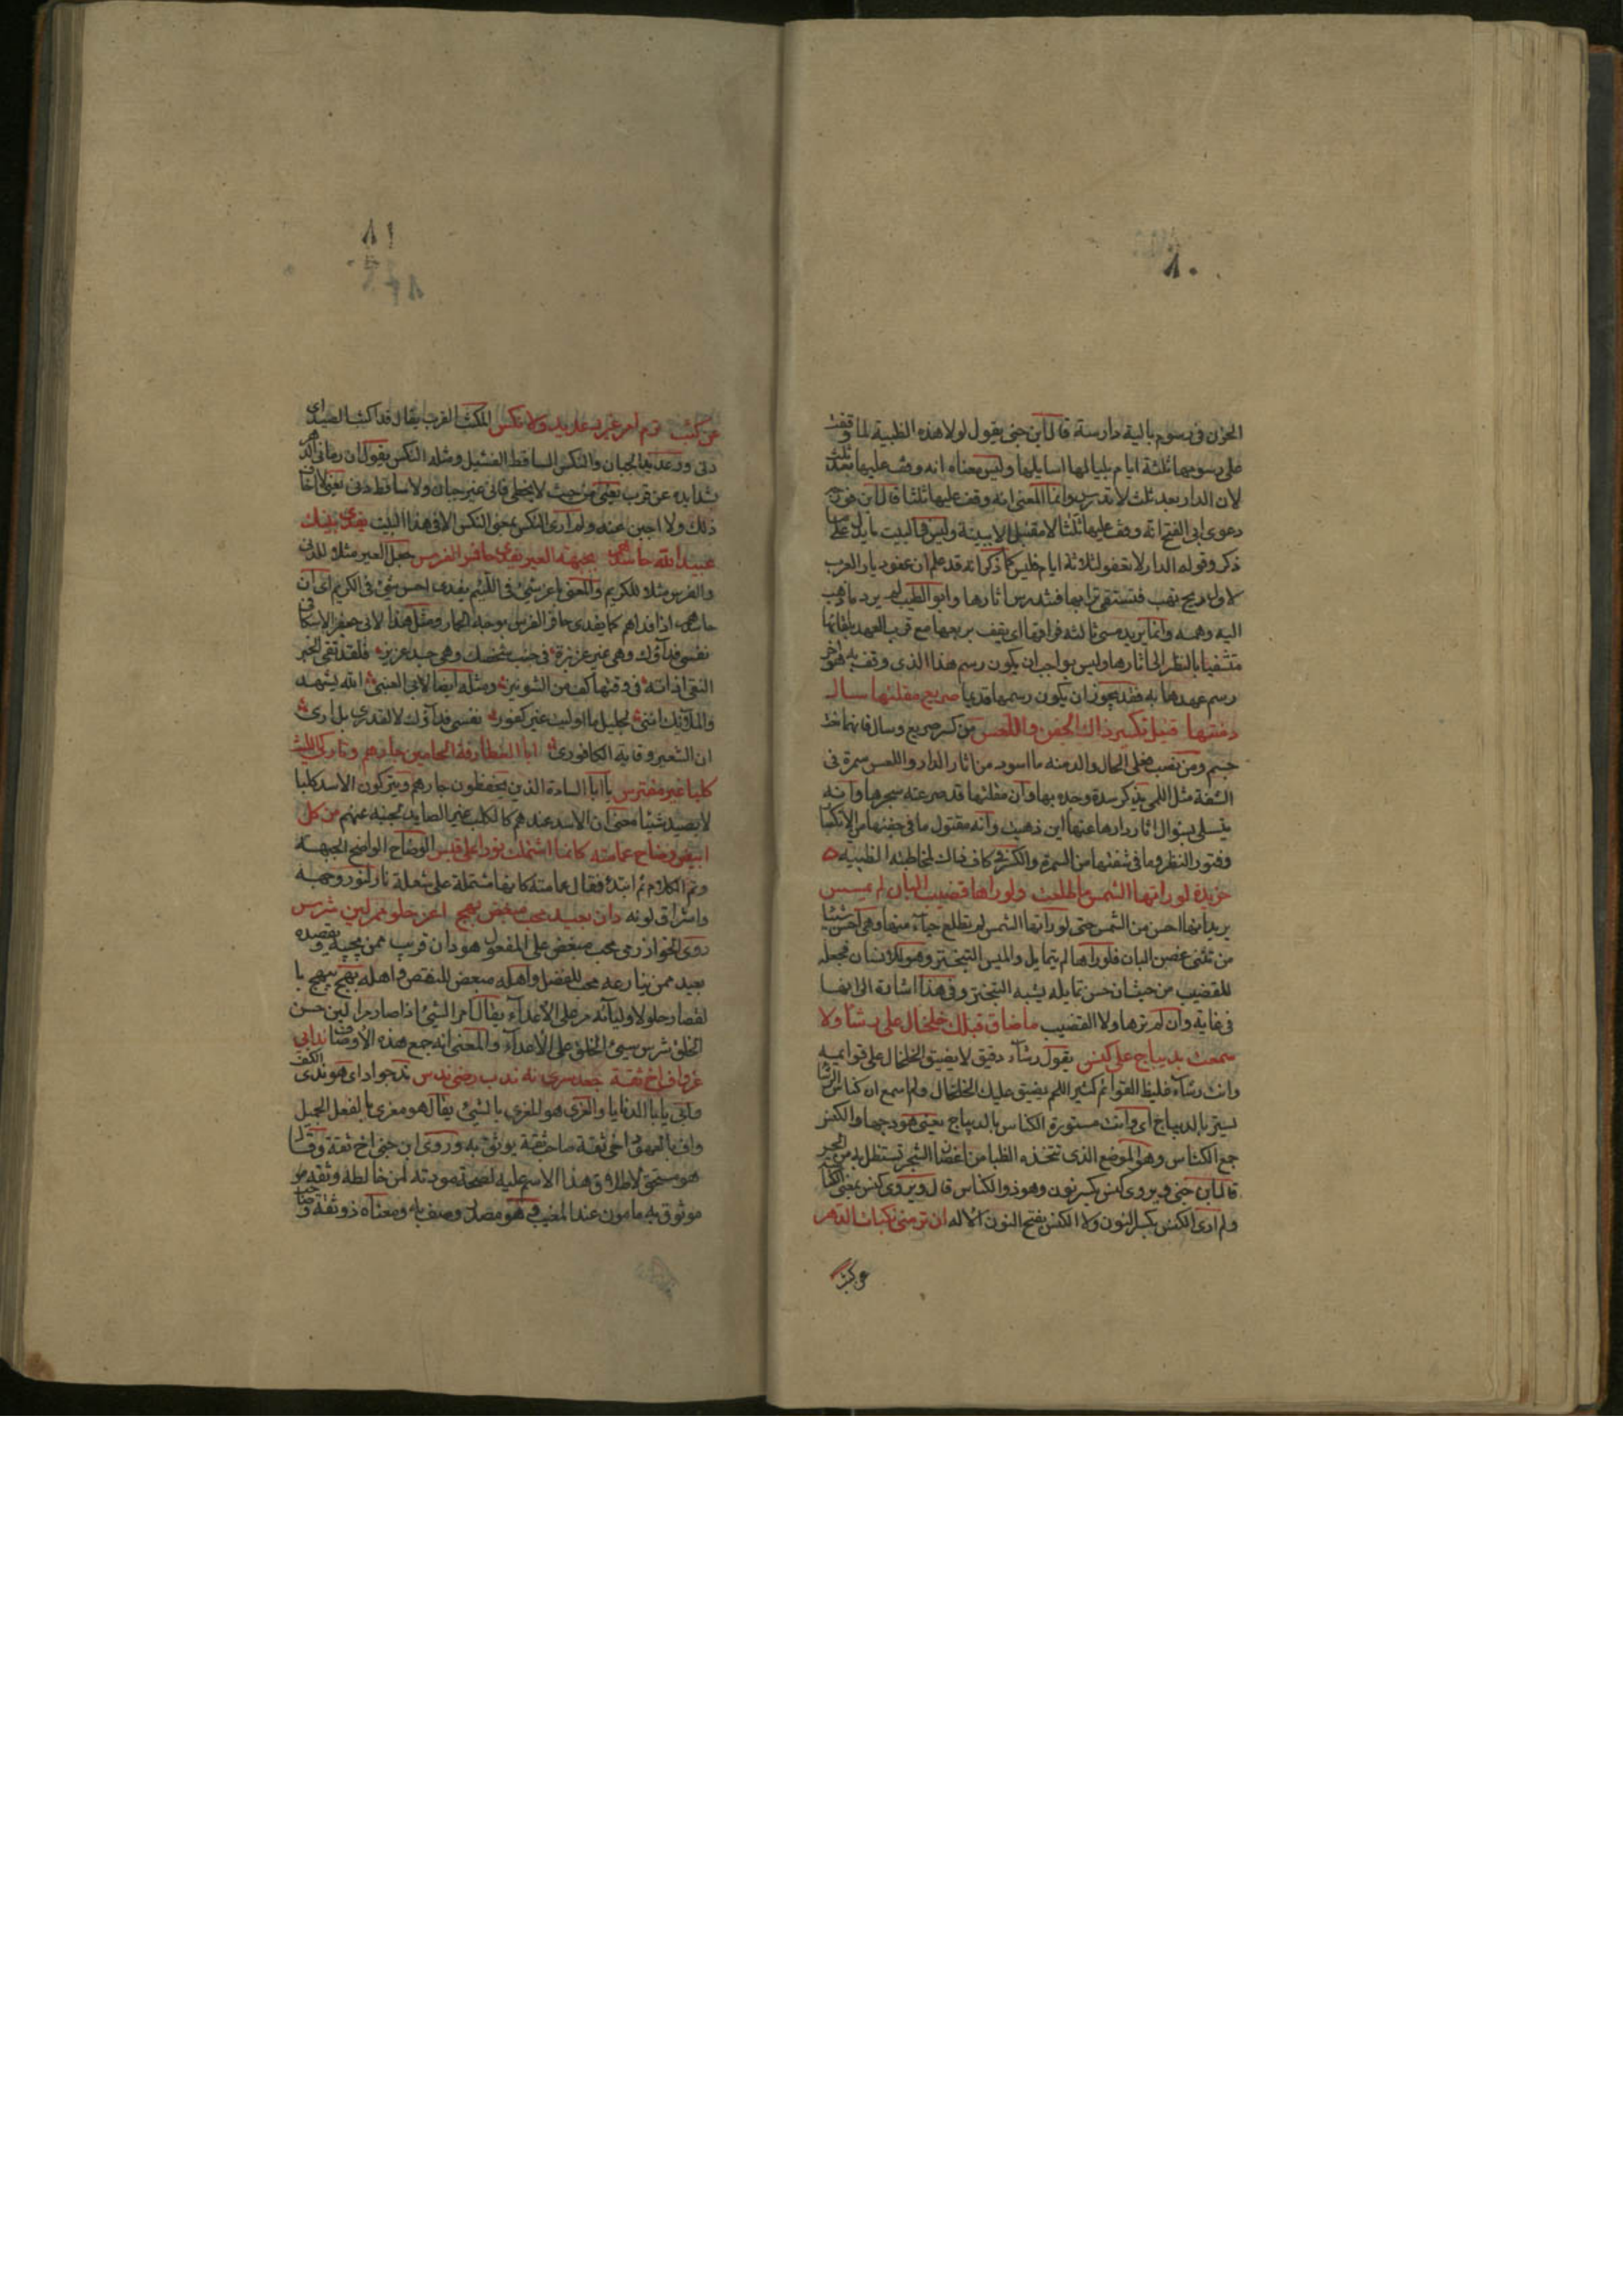 ٨٠
الحزن في رسوم بالية دارسة قال ابن جنى يقول لولا هذه الظبية لما وقفت
على رسومها ثلثة ايام بلياليها اسايلها وليس معناه انه وقف عليها بعد ثلث
لان الدار بعد ثلث لا تدرس وانما المعنى انه وقف عليها ثلثا قال ابن فورجه
دعوى ابى الفتح انه وقف عليها ثلثا لا مقبل الا ببينة وليس في البيت ما يدل على ما
ذكر وقوله الدار لا تعفو لثلاثة ايام فليس كما ذكر انه قد علم ان عفو ديار العرب
لاول ريح تهب فتستقى ترابها فتدرس اثارها وابو الطيب لم يرد ما ذهب
اليه وهمه وانما يريد مسى ثالثه فراقها اى يقف بربعها مع قرب العهد بلقائها
متشفيا بالنظر الى اثارها وليس بواجب ان يكون رسم هذا الذى وقف به هو اخر
رسم عهدها به فقد يجوز ان يكون رسمها قديما صريع مقلتها سال
دمنتها قتيل تكسير ذاك الجفن واللعس من كسر صريع وسال فانهما نعت
جسم ومن نصب فعلى الحال والدمنة ما اسود من اثار الدار واللعس سمرة في
الشفة مثل اللمى يذكر شدة وجده بها وان مقلتها قد صرعته بسحرها وانه
يتسلى بسؤال اثار دارها عنها اين ذهبت وانه مقتول ما في جفنها من الانكسار
وفتور النظر وما في شفتها من السمرة والكسر في كاف ذاك لمخاطبة الظبية
خريدة لو راتها الشمس ما طلعت ولو راها قضيب البان لم يمس
يريد انها احسن من الشمس حتى لو راتها الشمس لم تطلع حياء منها وهى احسن تثنيا
من تثنى غصن البان فلو راها لم يتمايل والميس التبختر وهو للانسان فجعله
للقضيب من حيث ان حسن تمايله يشبه التبختر وفي هذا اشارة الى انها
في غاية وان لم ترها ولا القضيب ما ضاق قبلك خلخال على رشا ولا
سمعت بديباج على كنس يقول رشاء دقيق لا يضيق الخلخال على قوايمه
وانت رشاء غليظ القوائم كثير اللحم يضيق عليك الخلخال ولم اسمع ان كناس الرشا
يستر بالديباج اى وانت مستورة الكناس بالديباج يعنى هودجها والكنس
جمع الكناس وهو الموضع الذى تتخذه الظبا من اغصان الشجر تستظل به من الحر
قال ابن جنى ويروى كنس بكسر نون وهو ذو الكناس قال ويروى كنس بمعنى الكناس
ولم ارى الكنس بكسر النون ولا الكنس بفتح النون الا له ان ترمنى نكبات الدهر
عن كثب
٨١
عن كثب ترم امرء غير رعديد ولا نكس المكثب القرب يقال قد اكثب الصيد اى
دنى والرعديد الجبان والنكس الساقط الفشيل ومثله النكس يقول ان رمانى الدهر
بشدايده عن قرب يعنى من حيث لا يخطى فانى غير جبان ولا ساقط دنى يعنى لا اخاف
ذلك ولا اجبن عنه ولم ارى النكس بمعنى النكس الا في هذا البيت يفدى بنيك
عبيد الله حاسدهم بجبهة العير يفدى حافر الفرس جعل العير مثلا للدنى
والفرس مثلا للكريم والمعنى اعز شئ في اللئيم يفدى اخس شئ في الكريم اى ان
حاسدهم اذا فداهم كما يفدى حافر الفرس بوجبة الحمار ومثل هذا لابى جعفر الاسكافى
نفسى فداؤك وهى غير عزيزة في جنب شخصك وهى جد عزيزه فلقد تقى الخبر
النقى اذاته في وقتها كف من الشونيز ومثله ايضا لابى العينى الله يشهد
والملائك اننى لجليل ما اوليت غير كفور نفسى فداؤك لا لقدرى بل ارى
ان الشعير وقاية الكافور ابا الغطارفة الحامين جارهم وتاركى الليث
كلبا غير مفترس يا ابا السادة الذين يحفظون جارهم ويتركون الاسد كلبا
لا يصيد شيئا معنى ان الاسد عندهم كالكلب غير الصايد لجبنه عنهم من كل
ابيض وضاح عمامته كانما اشتملت نورا على قبس الوضاح الواضح الجبهة
وتم الكلام ثم ابتدء فقال عمامته كانها مشتملة على شعلة نار لنور وجهه
واشراق لونه دان بعيد محب مبغض بهج اغر حلو ممر لين شرس
روى الخوارزمى محب مبغض على المفعول هو دان قريب ممن يحبه ويقصده
بعيد ممن ينازعه محب للفضل واهله مبغض للنقص واهله بهج يبهج با
لقصاد حلو لاوليائه مر على الاعداء يقال امر الشئ اذا صار مرا لين حسن
الخلق شرس سيئ الخلق على الاعداء والمعنى انه جمع هذه الاوصاف ند ابى
غر واف اخ ثقة جعد سرى نه ندب رضى ندس ند جواد اى هو ندى الكف
وابى يابا الدنايا والغرى هو المغرى بالشئ يقال هو مغرى بالفعل الجميل
واف بالعهود اخى ثقة صاحب ثقة يوثق به وروى ابن جنى اخ ثقة وقال
هو مستحق لاطلاق هذا الاسم عليه لصحة مودته لمن خالطه وثقه هو
موثوق به مامون عند المغيب وهو مصدر وصف به ومعناه ذو ثقة